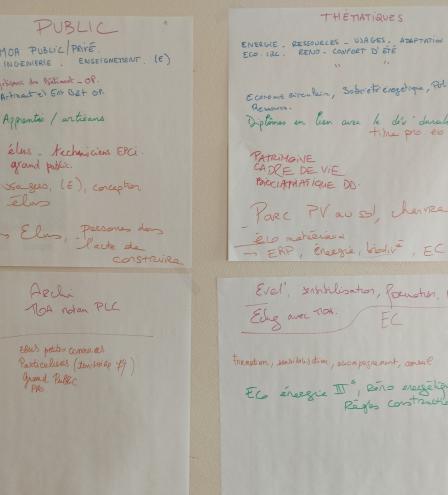 PUBLIC
MOA PUBLIC/PRIVÉ
INGENIERIE. ENSEIGNEMENT. (E)
Bâtiment - OP.
Artisanat et Ent Bat OP.
Apprentis / artisans
élus - techniciens EPCI
grand public.
usagers, (E), conception
élus
Elus, personnes dans
l'acte de
construire
Archi
MOA notam PLC
élus petites communes
Particuliers
Grand Public
PRO
THÉMATIQUES
ENERGIE - RESSOURCES - USAGES - ADAPTATION
RENO - CONFORT D'ÉTÉ
" "
Economie circulaire, Sobriété énergétique,
Diplômes en lien avec le dév durable
titre pro
PATRIMOINE
CADRE DE VIE
BIOCLIMATIQUE DD.
Parc PV au sol,
éco matériaux
→ ERP, énergie, EC
Eval°, sensibilisation, formation,
Echg avec MOA.
EC
Formation, sensibilisation, accompagnement, conseil
Eco énergie III°, Réno énergétique
Règles construction